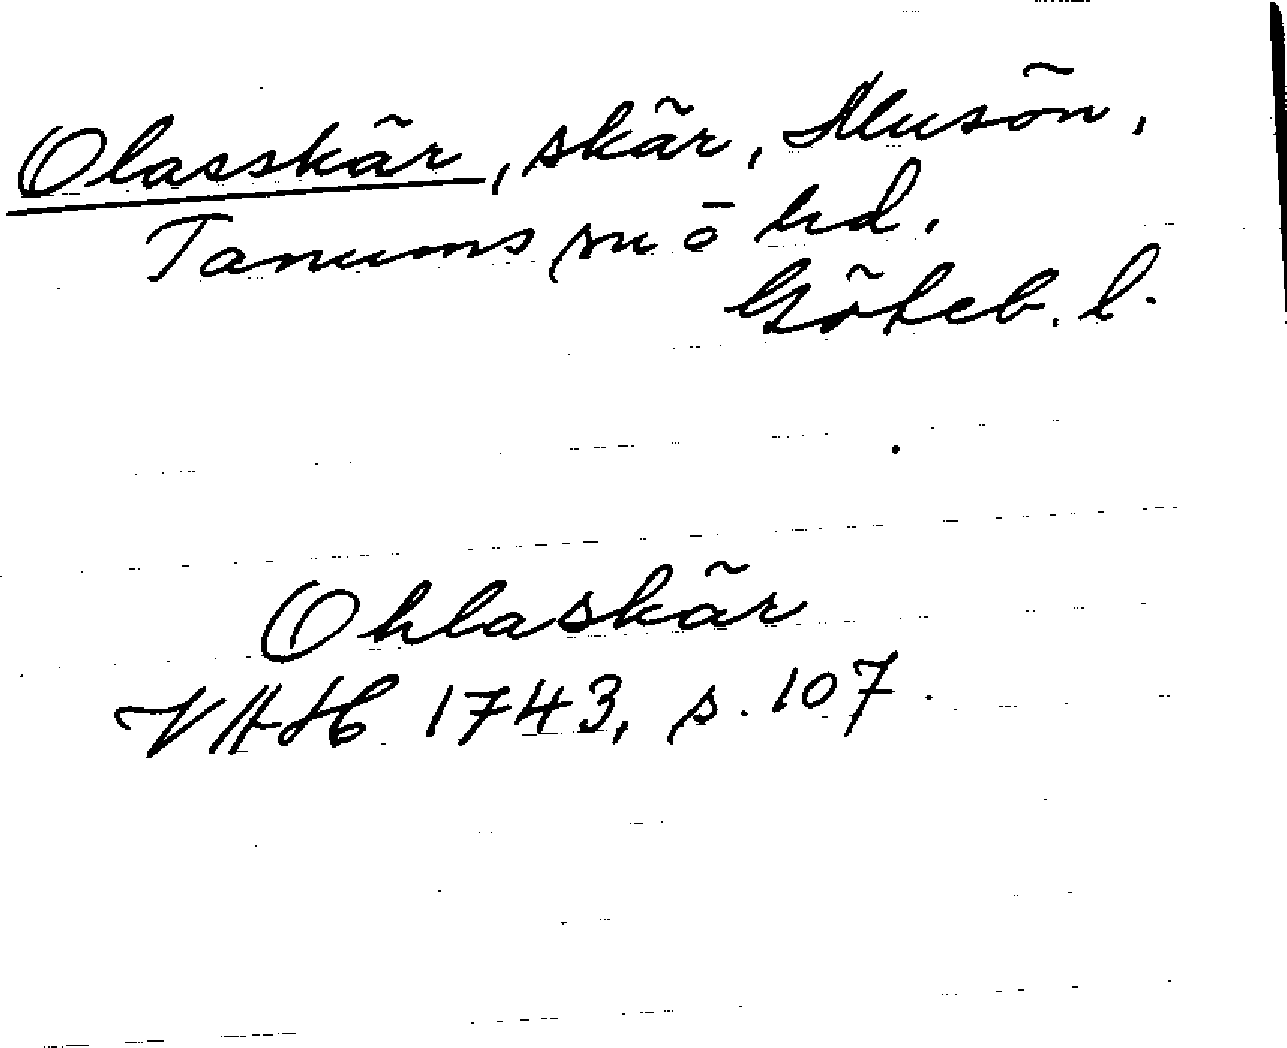 Olasskär, skär, Musön,
Tanums sn o hd.
Göteb. l.
Ohlaskär
VAH 1743, s. 107.